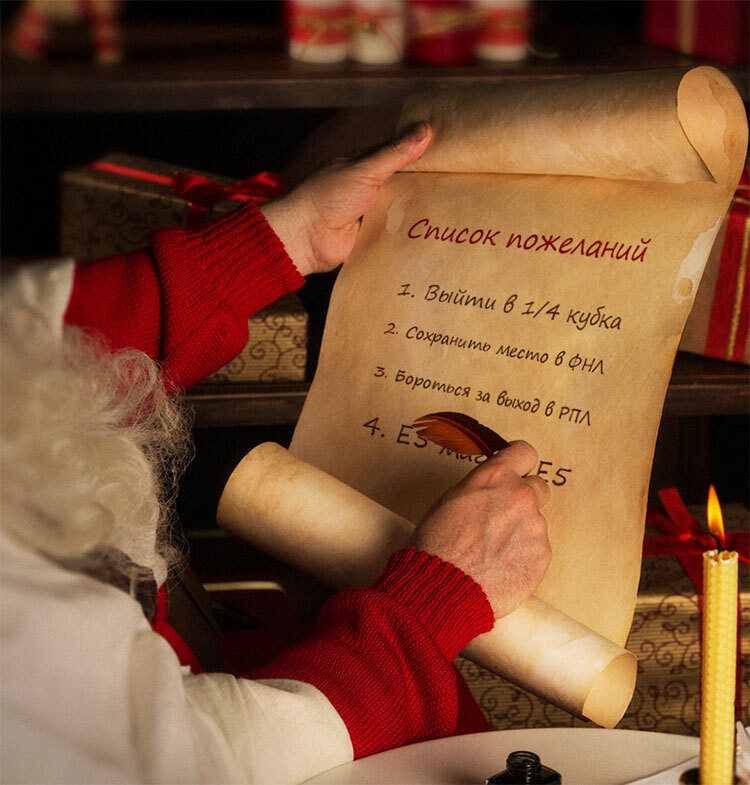 Список пожеланий
1. Выйти в 1/4 кубка
2. Сохранить место в ФНЛ
3. Бороться за выход в РПЛ
4. Е5 Е5